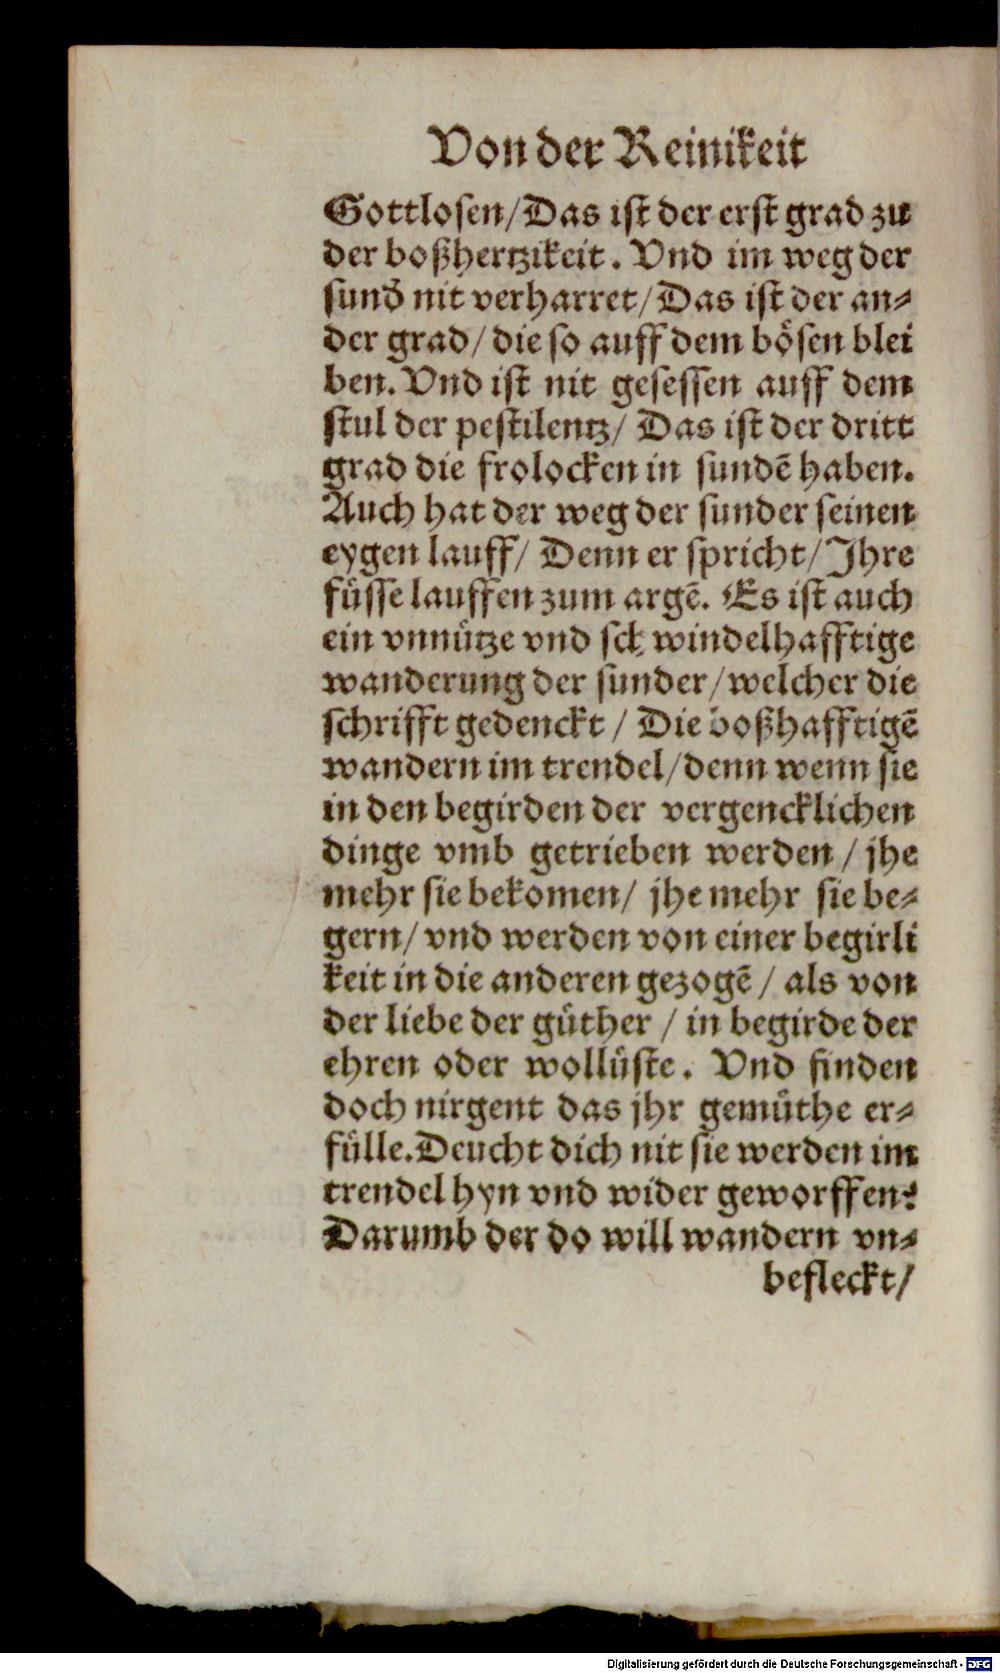 Von der Reinikeit
Gottlosen/Das ist der erst grad zu
der boßhertzikeit. Vnd im weg der
sund̕ nit verharret/Das ist der an⸗
der grad/ die so auff dem bösen blei
ben. Vnd ist nit gesessen auff dem
stul der pestilentz/ Das ist der dritt
grad die frolocken in sundē haben.
Auch hat der weg der sunder seinen
eygen lauff/ Denn er spricht/Jhre
füsse lauffen zum argē. Es ist auch
ein vnnütze vnd schwindelhafftige
wanderung der sunder/welcher die
schrifft gedenckt / Die boßhafftigē
wandern im trendel/denn wenn sie
in den begirden der vergencklichen
dinge vmb getrieben werden / jhe
mehr sie bekomen/ jhe mehr sie be⸗
gern/ vnd werden von einer begirli
keit in die anderen gezogē / als von
der liebe der güther / in begirde der
ehren oder wollüste. Vnd finden
doch nirgent das jhr gemüthe er⸗
fülle. Deucht dich nit sie werden im
trendel hyn vnd wider geworffen?
Darumb der do will wandern vn⸗
befleckt/
Digitalisierung gefördert durch die Deutsche Forschungsgemeinschaft - DFG